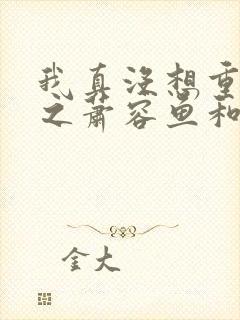 我真没想重
之萧容鱼和
金大